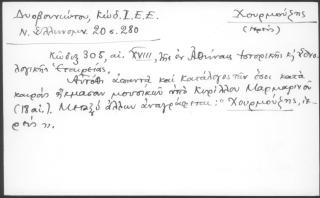 Δυοβουνιώτου, Κώδ. Ι.Ε.Ε.
Χουρμούζης
Ν. Ἑλληνομν. 20 σ. 280
(ἱερεύς)
Κῶδιξ 305, αἰ. XVIII, τῆς ἐν Ἀθήναις Ἱστορικῆς κ' Ἐθνο-
λογικῆς Ἑταιρείας.
Αὐτόθι ἀπαντᾷ καὶ κατάλογος τῶν ὅσοι κατὰ
καιροὺς ἤκμασαν μουσικῶν ὑπὸ Κυρίλλου Μαρμαρηνοῦ
(18 αἰ.). Μεταξὺ ἄλλων ἀναγράφεται: "Χουρμούζης, ἱε-
ρεύς".